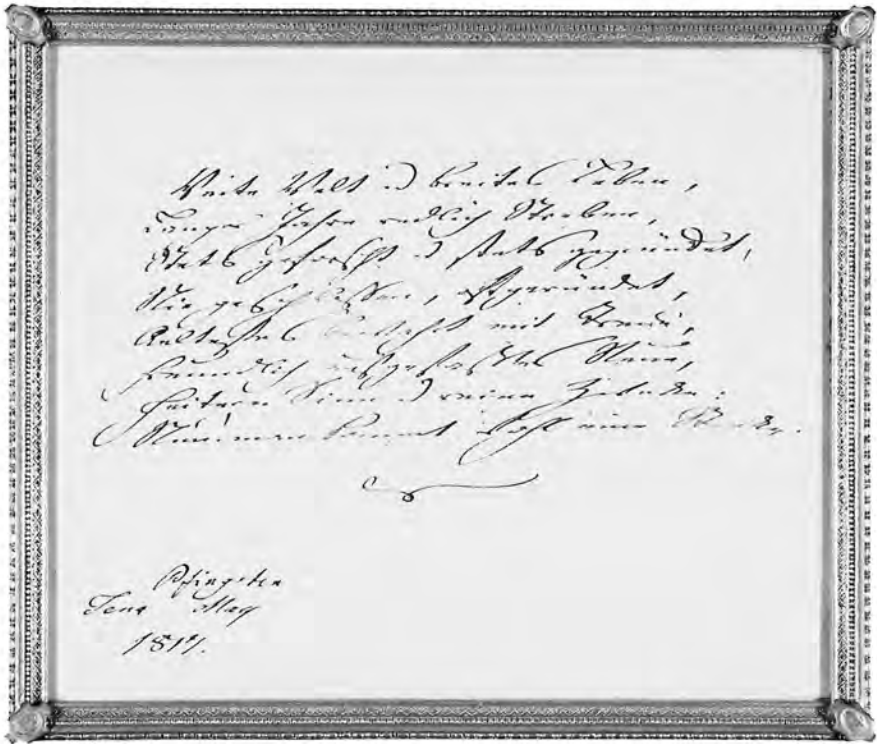 Weite Welt u breites Leben,
Langer Jahre redlich Streben,
Stets geforscht u stets gegründet,
Nie geschlossen, oft geründet,
Aeltestes bewahrt mit Treue,
Freundlich aufgefasstes Neue,
Heitern Sinn u reine Zwecke:
Nun! man kommt wohl eine Strecke.
Pfingsten
Jena May
1817.